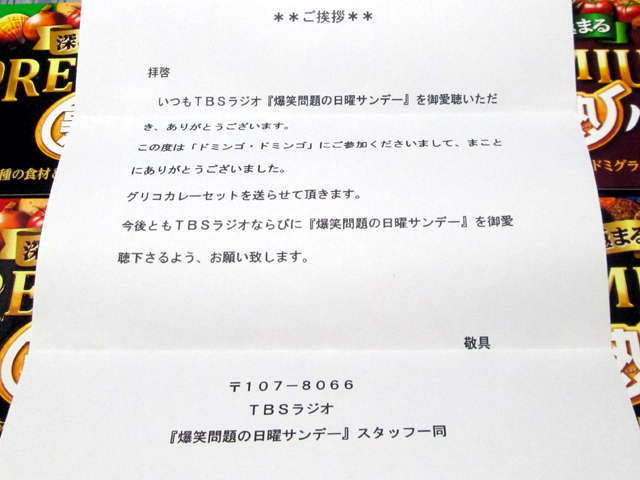 ＊＊ご挨拶＊＊
深
まる
PRE
MIU
拝啓
いつもＴＢＳラジオ『爆笑問題の日曜サンデー』を御愛聴いただ
き、ありがとうございます。
この度は「ドミンゴ・ドミンゴ」にご参加くださいまして、まこと
にありがとうございました。
種の食材
ドミグラ
グリコカレーセットを送らせて頂きます。
今後ともＴＢＳラジオならびに『爆笑問題の日曜サンデー』を御愛
聴下さるよう、お願い致します。
深
まる
敬具
〒１０７－８０６６
ＴＢＳラジオ
『爆笑問題の日曜サンデー』スタッフ一同